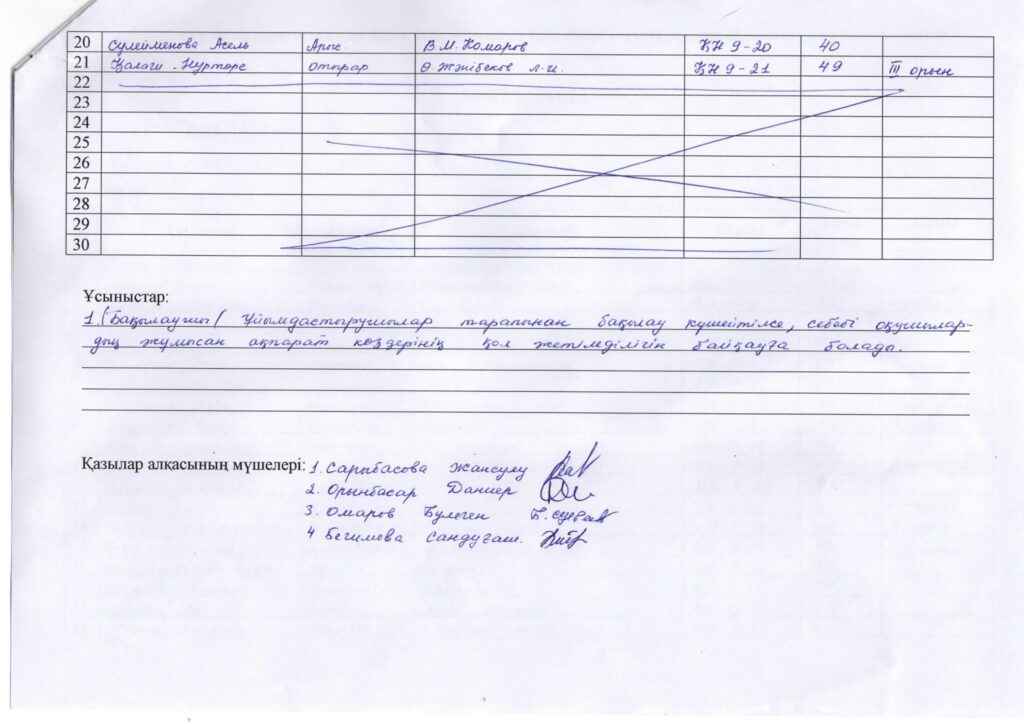 20 Сулейменова Асель Арыс В.М.Комаров ҚН 9-20 40
21 Қалағи Нуртөре Отырар Ө.Жәнібеков л-и. ҚН 9-21 49 III орын
22
23
24
25
26
27
28
29
30
Ұсыныстар:
1. (Бақылаушы/ Ұйымдастырушылар тарапынан бақылау күшейтілсе, себебі оқушылар-
дың жұмысан ақпарат көздерінің қол жетімділігін байқауға болады.
Қазылар алқасының мүшелері: 1. Сарыбасова Жансулу
2. Орынбасар Данияр
3. Омаров
4 Бегимова Сандуғаш.